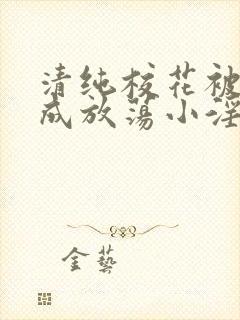 清纯校花被
成放荡小淫
金藝